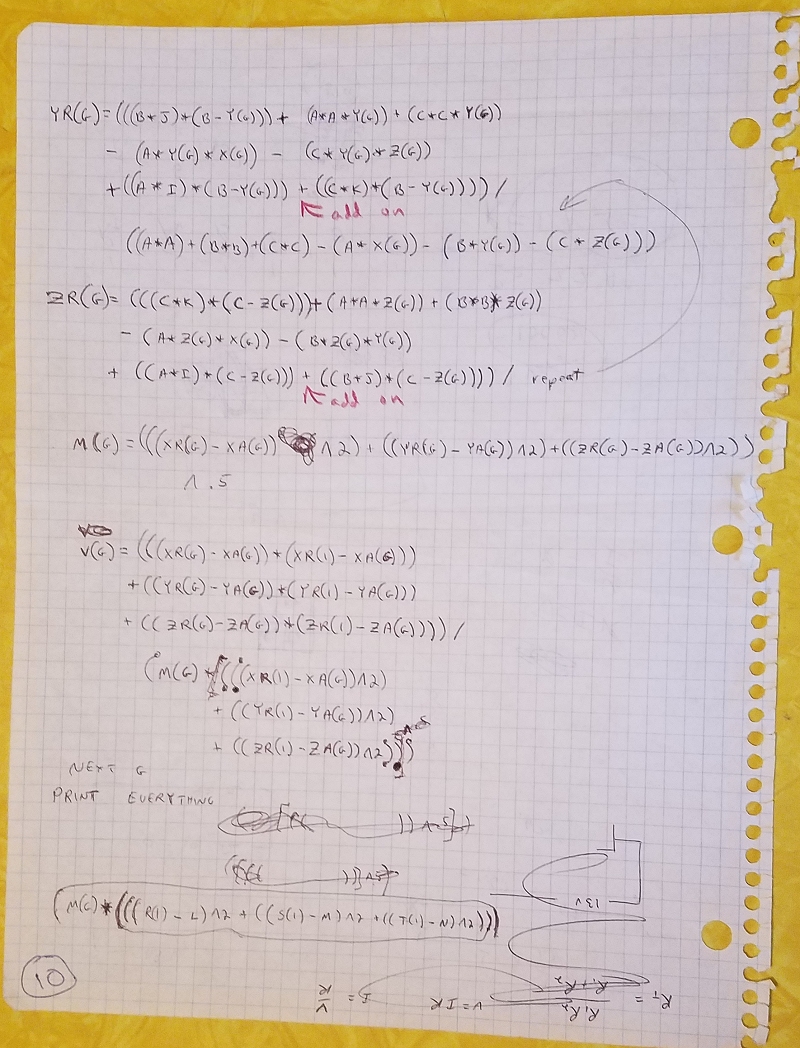 YR(G)=(((B*J)*(B-Y(G)))+ (A*A*Y(G))+(C*C*Y(G))
- (A*Y(G)*X(G)) - (C*Y(G)*Z(G))
+((A*I)*(B-Y(G))) + ((C*K)*(B-Y(G))))/
add on
((A*A)+(B*B)+(C*C)-(A*X(G))-(B*Y(G))-(C*Z(G)))
ZR(G)= (((C*K)*(C-Z(G)))+(A*A*Z(G))+(B*B*Z(G))
-(A*Z(G)*X(G))-(B*Z(G)*Y(G))
+ ((A*I)*(C-Z(G))) + ((B*J)*(C-Z(G))))/ repeat
add on
M(G)=(((XR(G)-XA(G)) ^2)+((YR(G)-YA(G))^2)+((ZR(G)-ZA(G))^2))
^.5
V(G)=(((XR(G)-XA(G))*(XR(1)-XA(G)))
+((YR(G)-YA(G))*(YR(1)-YA(G)))
+((ZR(G)-ZA(G))*(ZR(1)-ZA(G))))/
(M(G)*(((XR(1)-XA(G))^2)
+((YR(1)-YA(G))^2)
+((ZR(1)-ZA(G))^2)))
NEXT G
PRINT EVERYTHING
(M(G)*(((R(1)-L)^2+((S(1)-M)^2+((T(1)-N)^2)))
13V
10
I = V/R
V=IR
R_T = R₁R₂/R₁+R₂